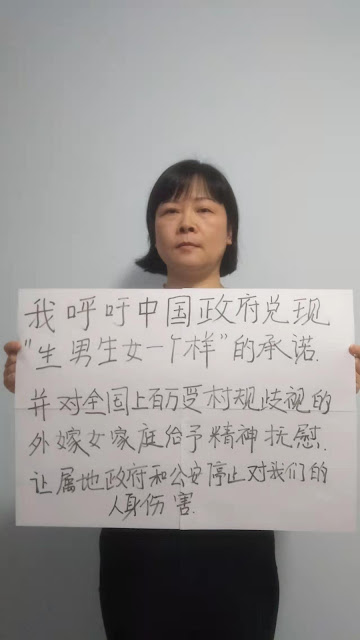 我呼吁中国政府兑现
"生男生女一个样"的承诺.
并对全国上百万受村规歧视的
外嫁女家庭给予精神抚慰.
让属地政府和公安停止对我们的
人身伤害.